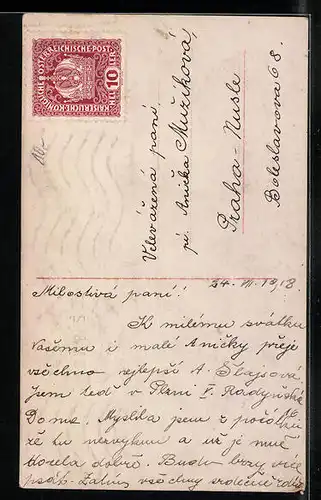 KAISERLICHE KÖNIGLICHE ÖSTERREICHISCHE POST
10 HELLER
Velevážená paní
pí. Anička Mužíková,
Praha-Nusle
Boleslavova 68.
24. VII. 1918.
Milostivá paní!
K milému svátku
Vašemu i malé Aničky přeje
všechno nejlepší A. Šlajsová.
Jsem teď v Plzni
Doma. Myslila jsem z počátku
že tu nezvyknu a už je mně
docela dobře. Budu brzy více
psát. Zatím všechny srdečně